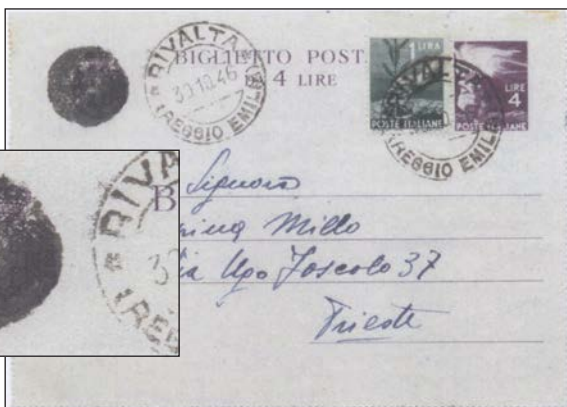 RIVALTA
30.10.46
(REGGIO EMILIA)
BIGLIETTO POST
4 LIRE
1 LIRA
POSTE ITALIANE
LIRE
4
POSTE ITALIANE
RIVALTA
(REGGIO EMILIA)
Signora
Millo
Ugo Foscolo 37
Trieste
RIVA
B
(REG